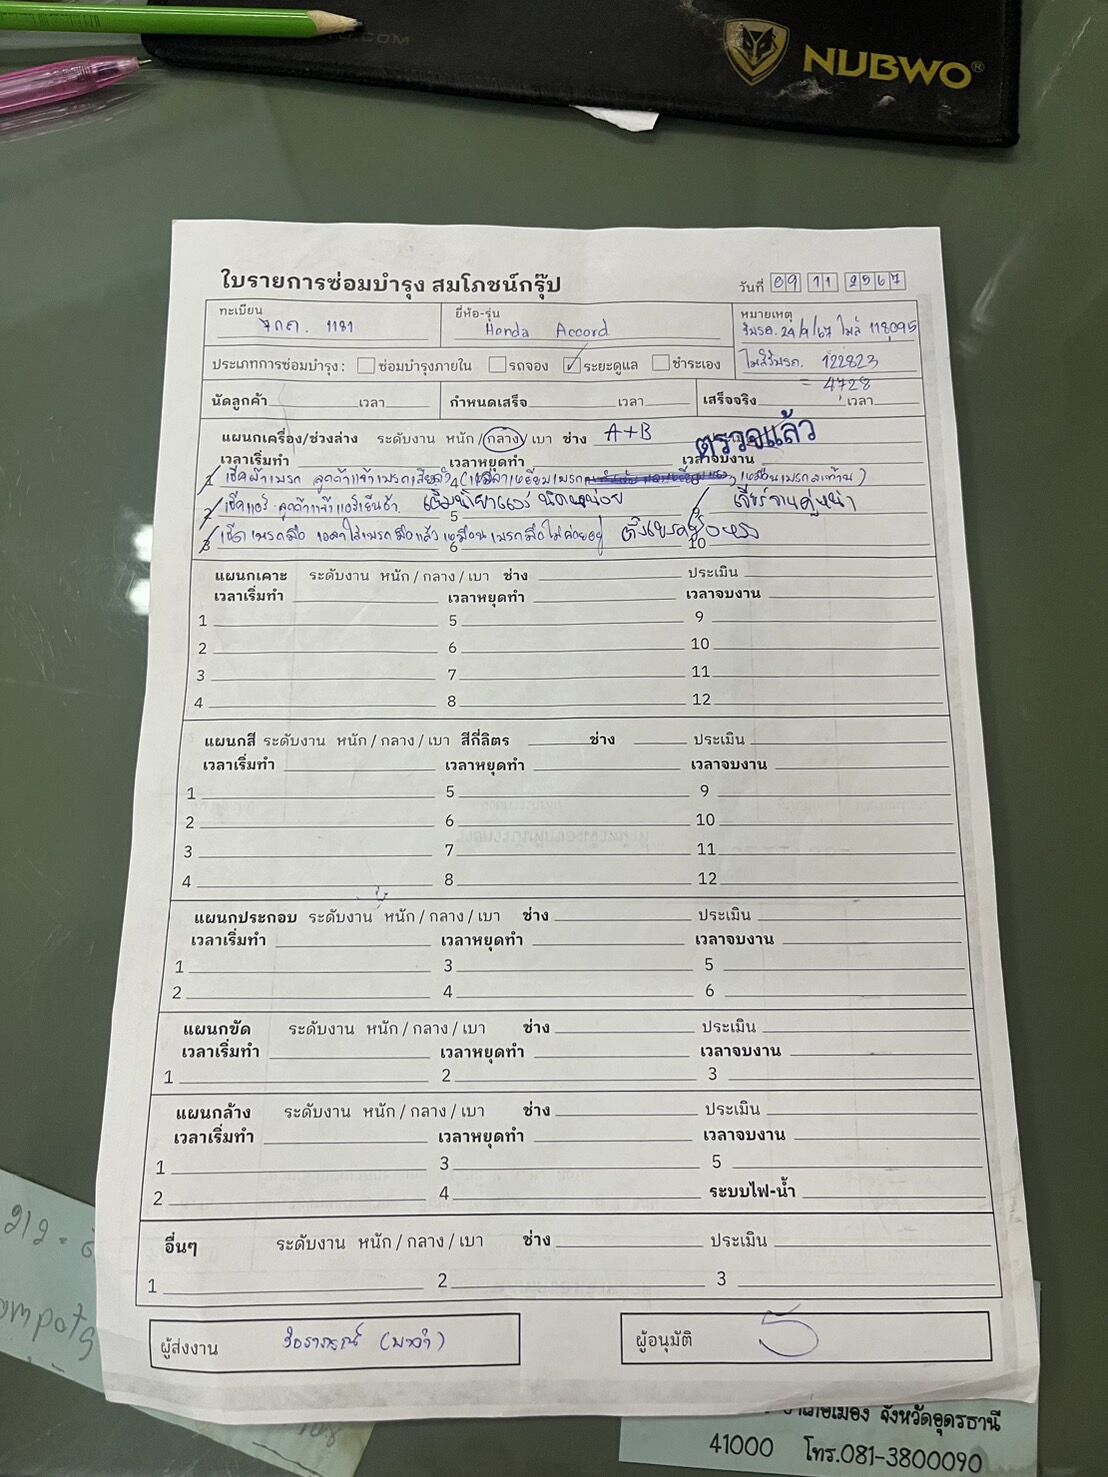 NUBWO®
ใบรายการซ่อมบำรุง สมโภชน์กรุ๊ป
วันที่ 09 11 2567
ทะเบียน 1181
ยี่ห้อ-รุ่น Honda Accord
หมายเหตุ
รับรถ. 24/9/67 ไมล์ 118095
ไมล์รับรถ. 122823
= 4728
ประเภทการซ่อมบำรุง : ซ่อมบำรุงภายใน รถจอง ระยะดูแล ชำระเอง
นัดลูกค้า เวลา กำหนดเสร็จ เวลา เสร็จจริง เวลา
แผนกเครื่อง/ช่วงล่าง ระดับงาน หนัก / กลาง / เบา ช่าง A+B ตรวจแล้ว
เวลาเริ่มทำ เวลาหยุดทำ เวลาจบงาน
1 เช็คผ้าเบรก ลูกค้าแจ้งเบรกเสียงดัง (เวลาเหยียบเบรก เหมือนเบรกสะท้าน)
2 เช็คแอร์ ลูกค้าแจ้งแอร์เย็นช้า เติมน้ำยาแอร์ นิดหน่อย 5 9 เจียร์จานคู่หน้า
3 เช็คเบรกมือ เวลาใส่เบรกมือแล้วเหมือนเบรกมือไม่ค่อยอยู่ 6 10
แผนกเคาะ ระดับงาน หนัก / กลาง / เบา ช่าง ประเมิน
เวลาเริ่มทำ เวลาหยุดทำ เวลาจบงาน
1 5 9
2 6 10
3 7 11
4 8 12
แผนกสี ระดับงาน หนัก / กลาง / เบา สีกี่ลิตร ช่าง ประเมิน
เวลาเริ่มทำ เวลาหยุดทำ เวลาจบงาน
1 5 9
2 6 10
3 7 11
4 8 12
แผนกประกอบ ระดับงาน หนัก / กลาง / เบา ช่าง ประเมิน
เวลาเริ่มทำ เวลาหยุดทำ เวลาจบงาน
1 3 5
2 4 6
แผนกขัด ระดับงาน หนัก / กลาง / เบา ช่าง ประเมิน
เวลาเริ่มทำ เวลาหยุดทำ เวลาจบงาน
1 2 3
แผนกล้าง ระดับงาน หนัก / กลาง / เบา ช่าง ประเมิน
เวลาเริ่มทำ เวลาหยุดทำ เวลาจบงาน
1 3 5
2 4 ระบบไฟ-น้ำ
อื่นๆ ระดับงาน หนัก / กลาง / เบา ช่าง ประเมิน
1 2 3
ผู้ส่งงาน
ผู้อนุมัติ
อำเภอเมือง จังหวัดอุดรธานี
41000 โทร.081-3800090